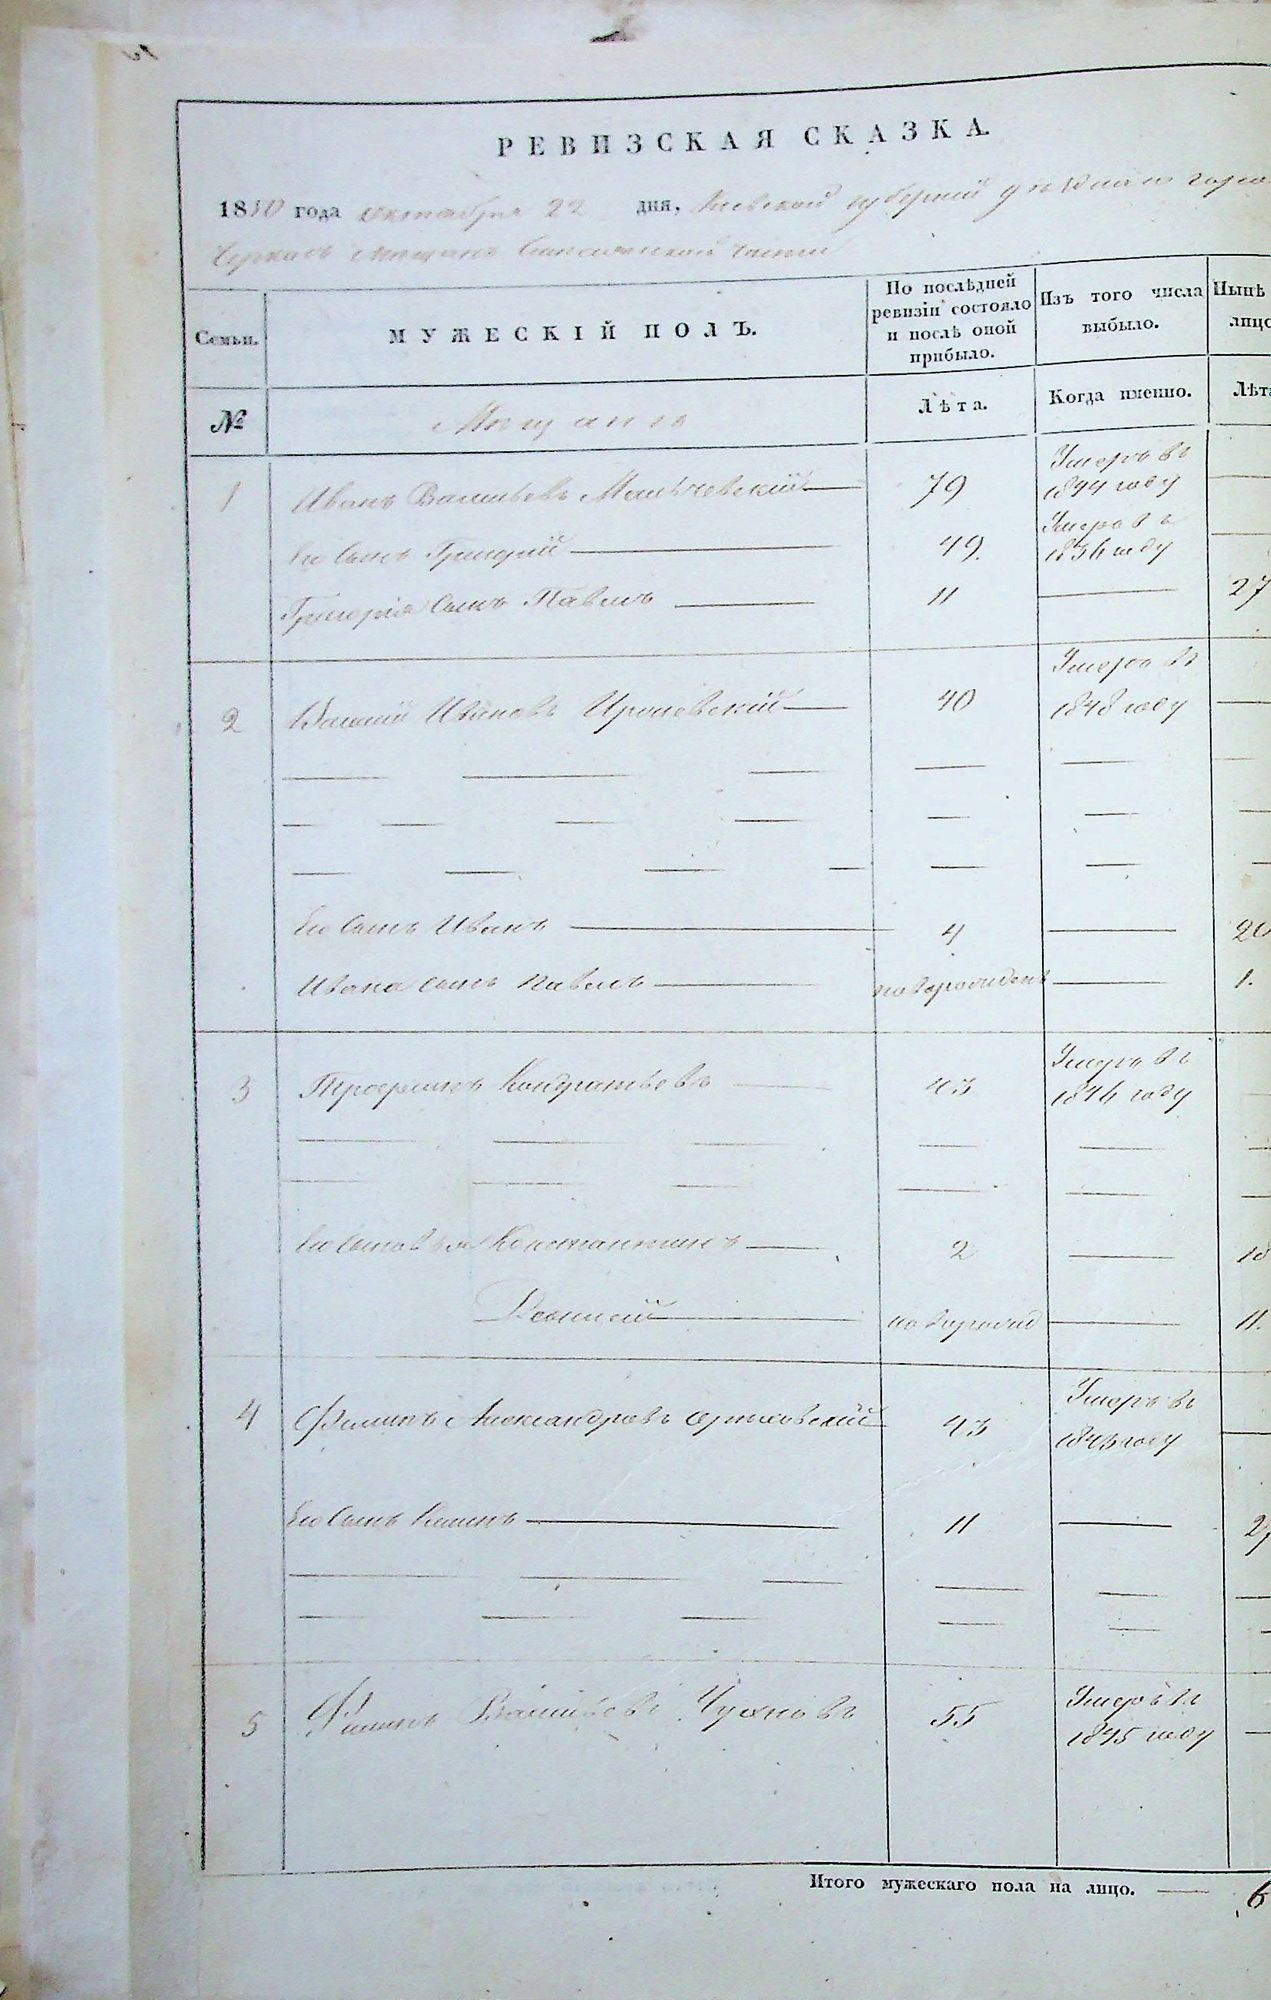 РЕВИЗСКАЯ СКАЗКА.
1850 года октября 22 дня, Киевской губернии уезднаго города
Черкас мещан части
Семьи.
МУЖЕСКІЙ ПОЛЪ.
По послѣдней ревизіи состояло и послѣ оной прибыло.
Изъ того числа выбыло.
Нынѣ
лицо
№
Мещане
Лѣта.
Когда именно.
Лѣта
1 Иванъ Васильевъ 79 Умеръ въ 1844 году
Его Сынъ Григорій 49. Умеръ въ 1836 году
Григорія Сынъ Павелъ 11 27
2 Василій Ивановъ 40 Умеръ въ 1848 году
Его Сынъ Иванъ 4 20
Ивана сынъ Павелъ новорожденъ 1.
3 Трофимъ Кондратьевъ 43 Умеръ въ 1846 году
Его Сыновья Константинъ 2 18
новорожд 11.
4 Филипъ Александровъ 43 Умеръ въ 1843 году
Его Сынъ 11 27
5 Филипъ Васильевъ Чухновъ 55 Умеръ въ 1845 году
Итого мужескаго пола на лицо. 6